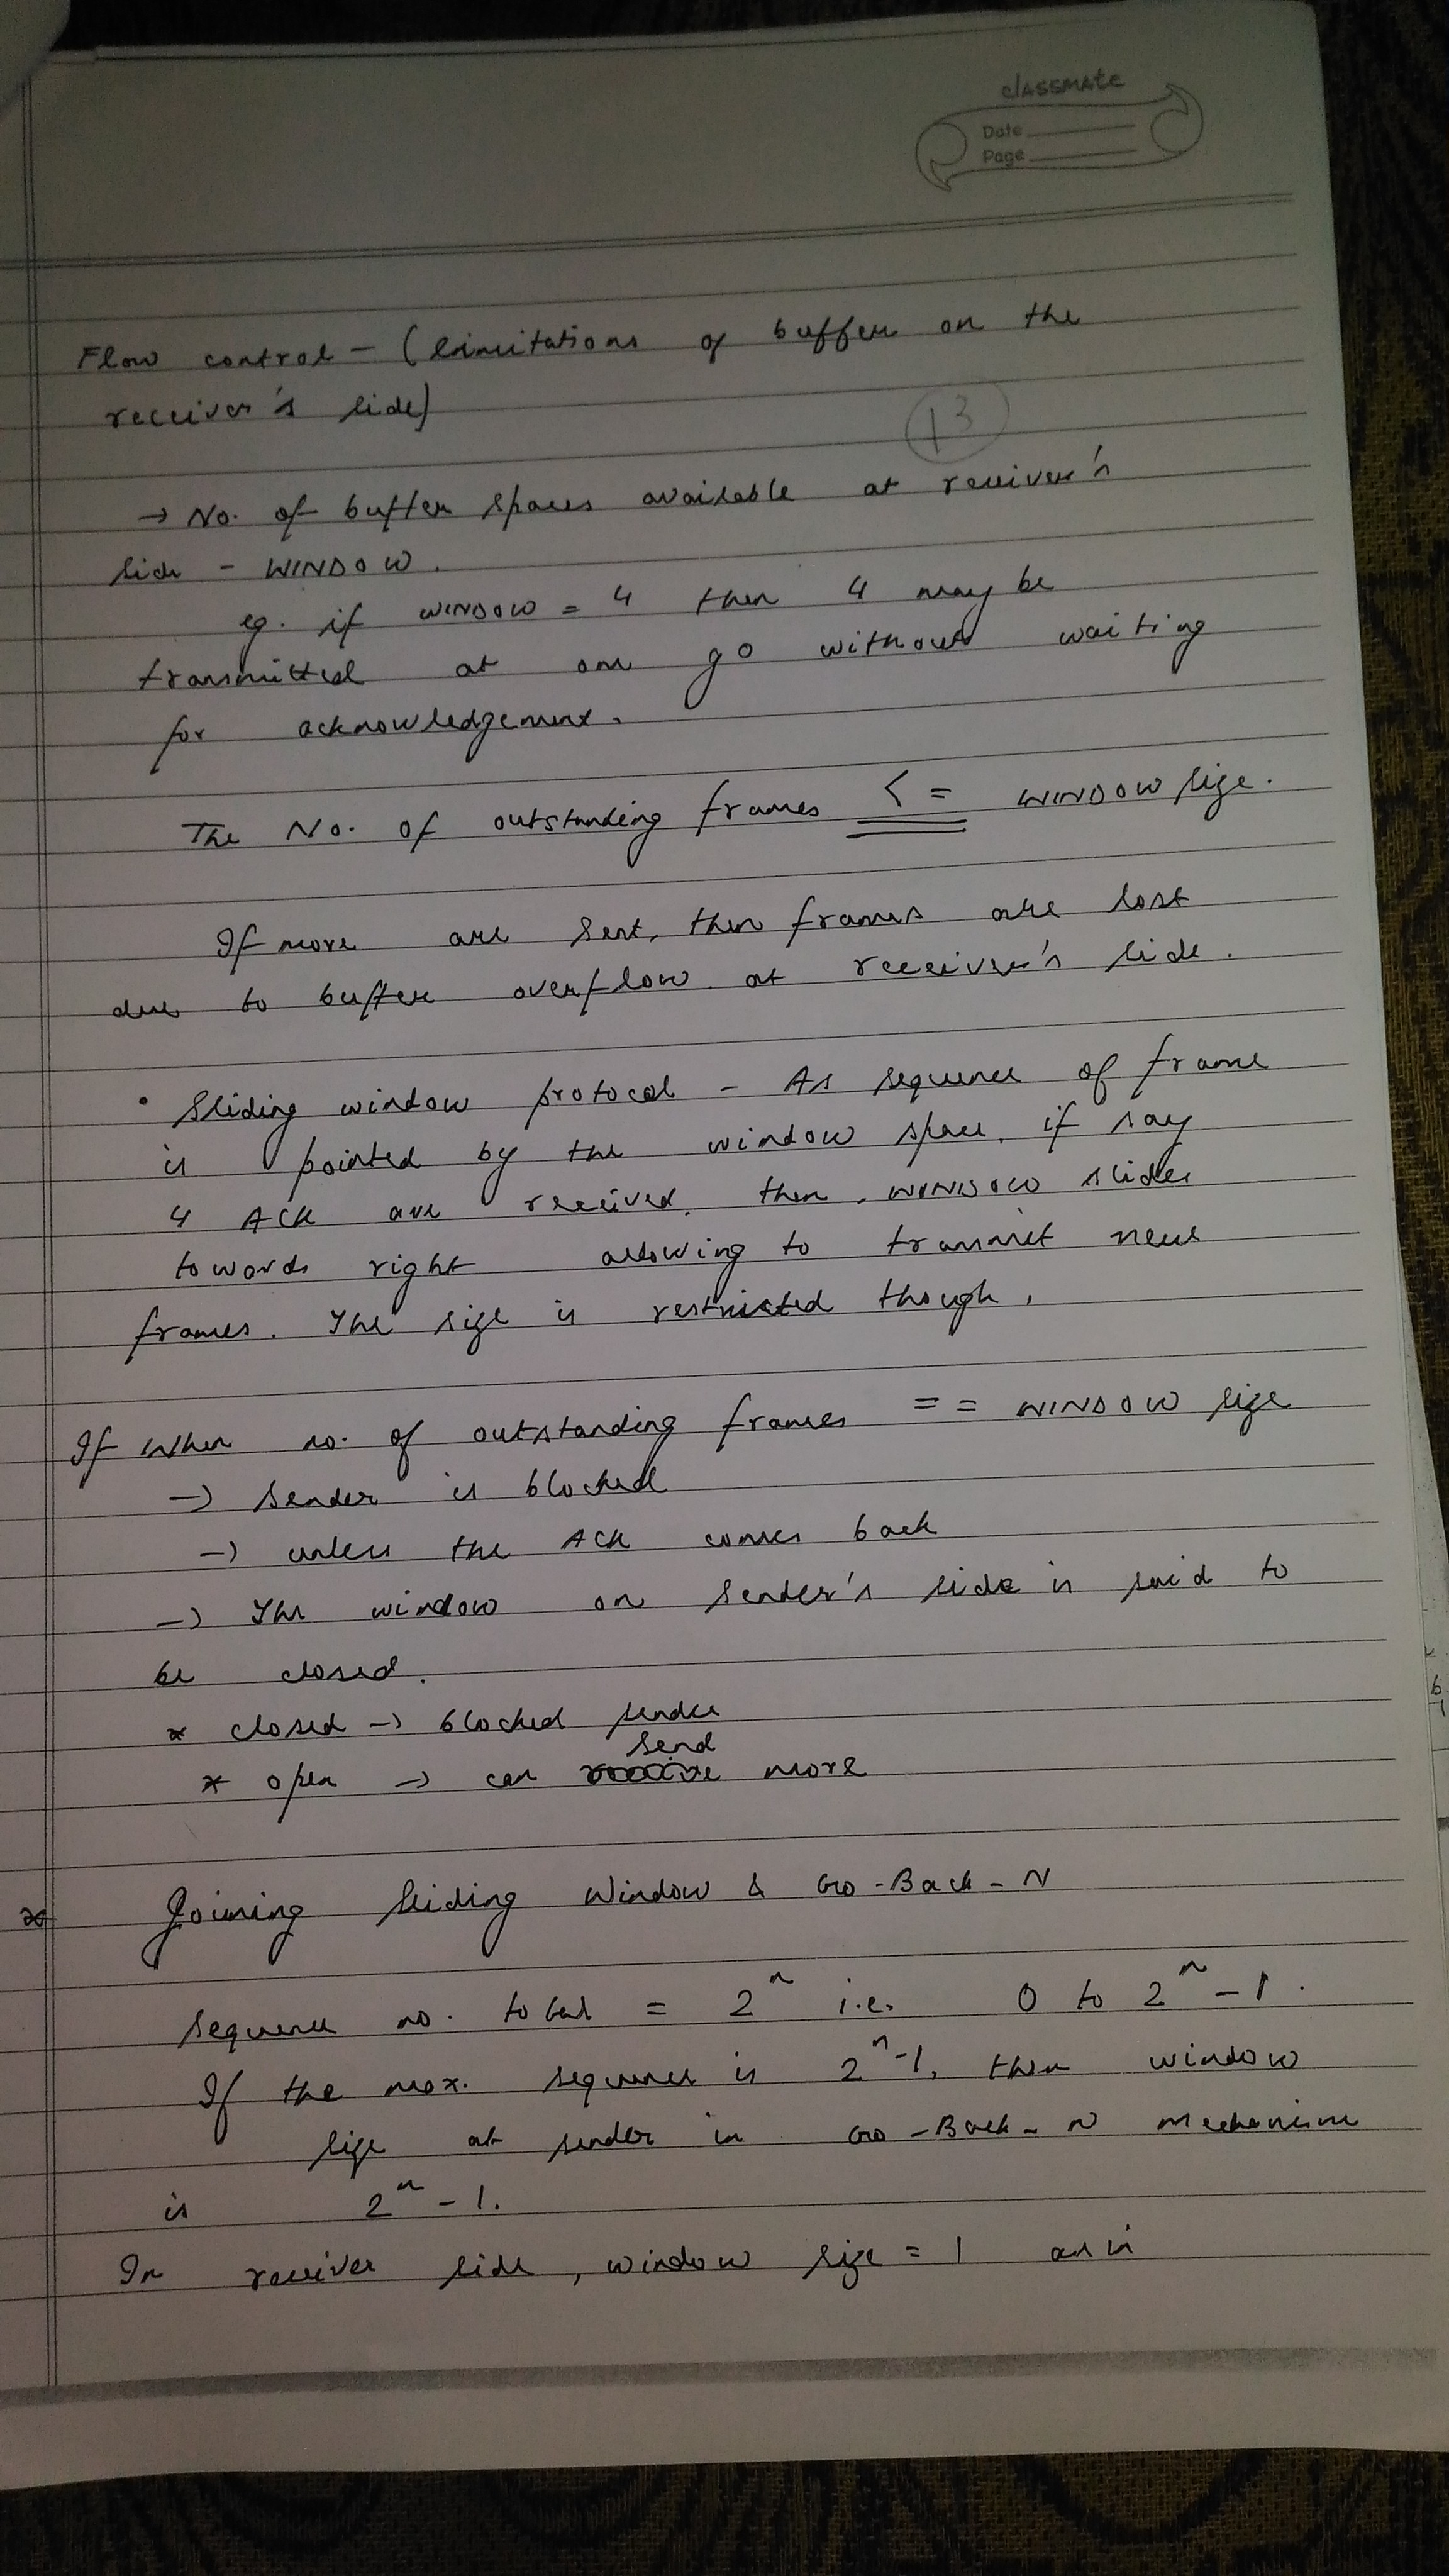 classmate
Date
Page
Flow control - (limitations of buffer on the
receiver's side)
13
→ No. of buffer spaces available at receiver's
side - WINDOW.
eg. if WINDOW = 4 then 4 may be
transmitted at one go without waiting
for acknowledgement.
The No. of outstanding frames <= WINDOW size.
If more are sent, then frames are lost
due to buffer overflow at receiver's side.
• Sliding window protocol - As sequence of frame
is pointed by the window space, if say
4 ACK are received, then WINDOW slides
towards right allowing to transmit new
frames. The size is restricted though.
If When no. of outstanding frames == WINDOW size
→ Sender is blocked
→ unless the ACK comes back
→ The window on sender's side is said to
be closed.
* closed → blocked sender
send
* open → can receive more
* Joining Sliding Window & Go-Back-N
Sequence no. total = 2^n i.e. 0 to 2^n - 1.
If the max. sequence is 2^n-1, then window
size at sender in Go-Back-N mechanism
is 2^n - 1.
In receiver side, window size = 1 as in